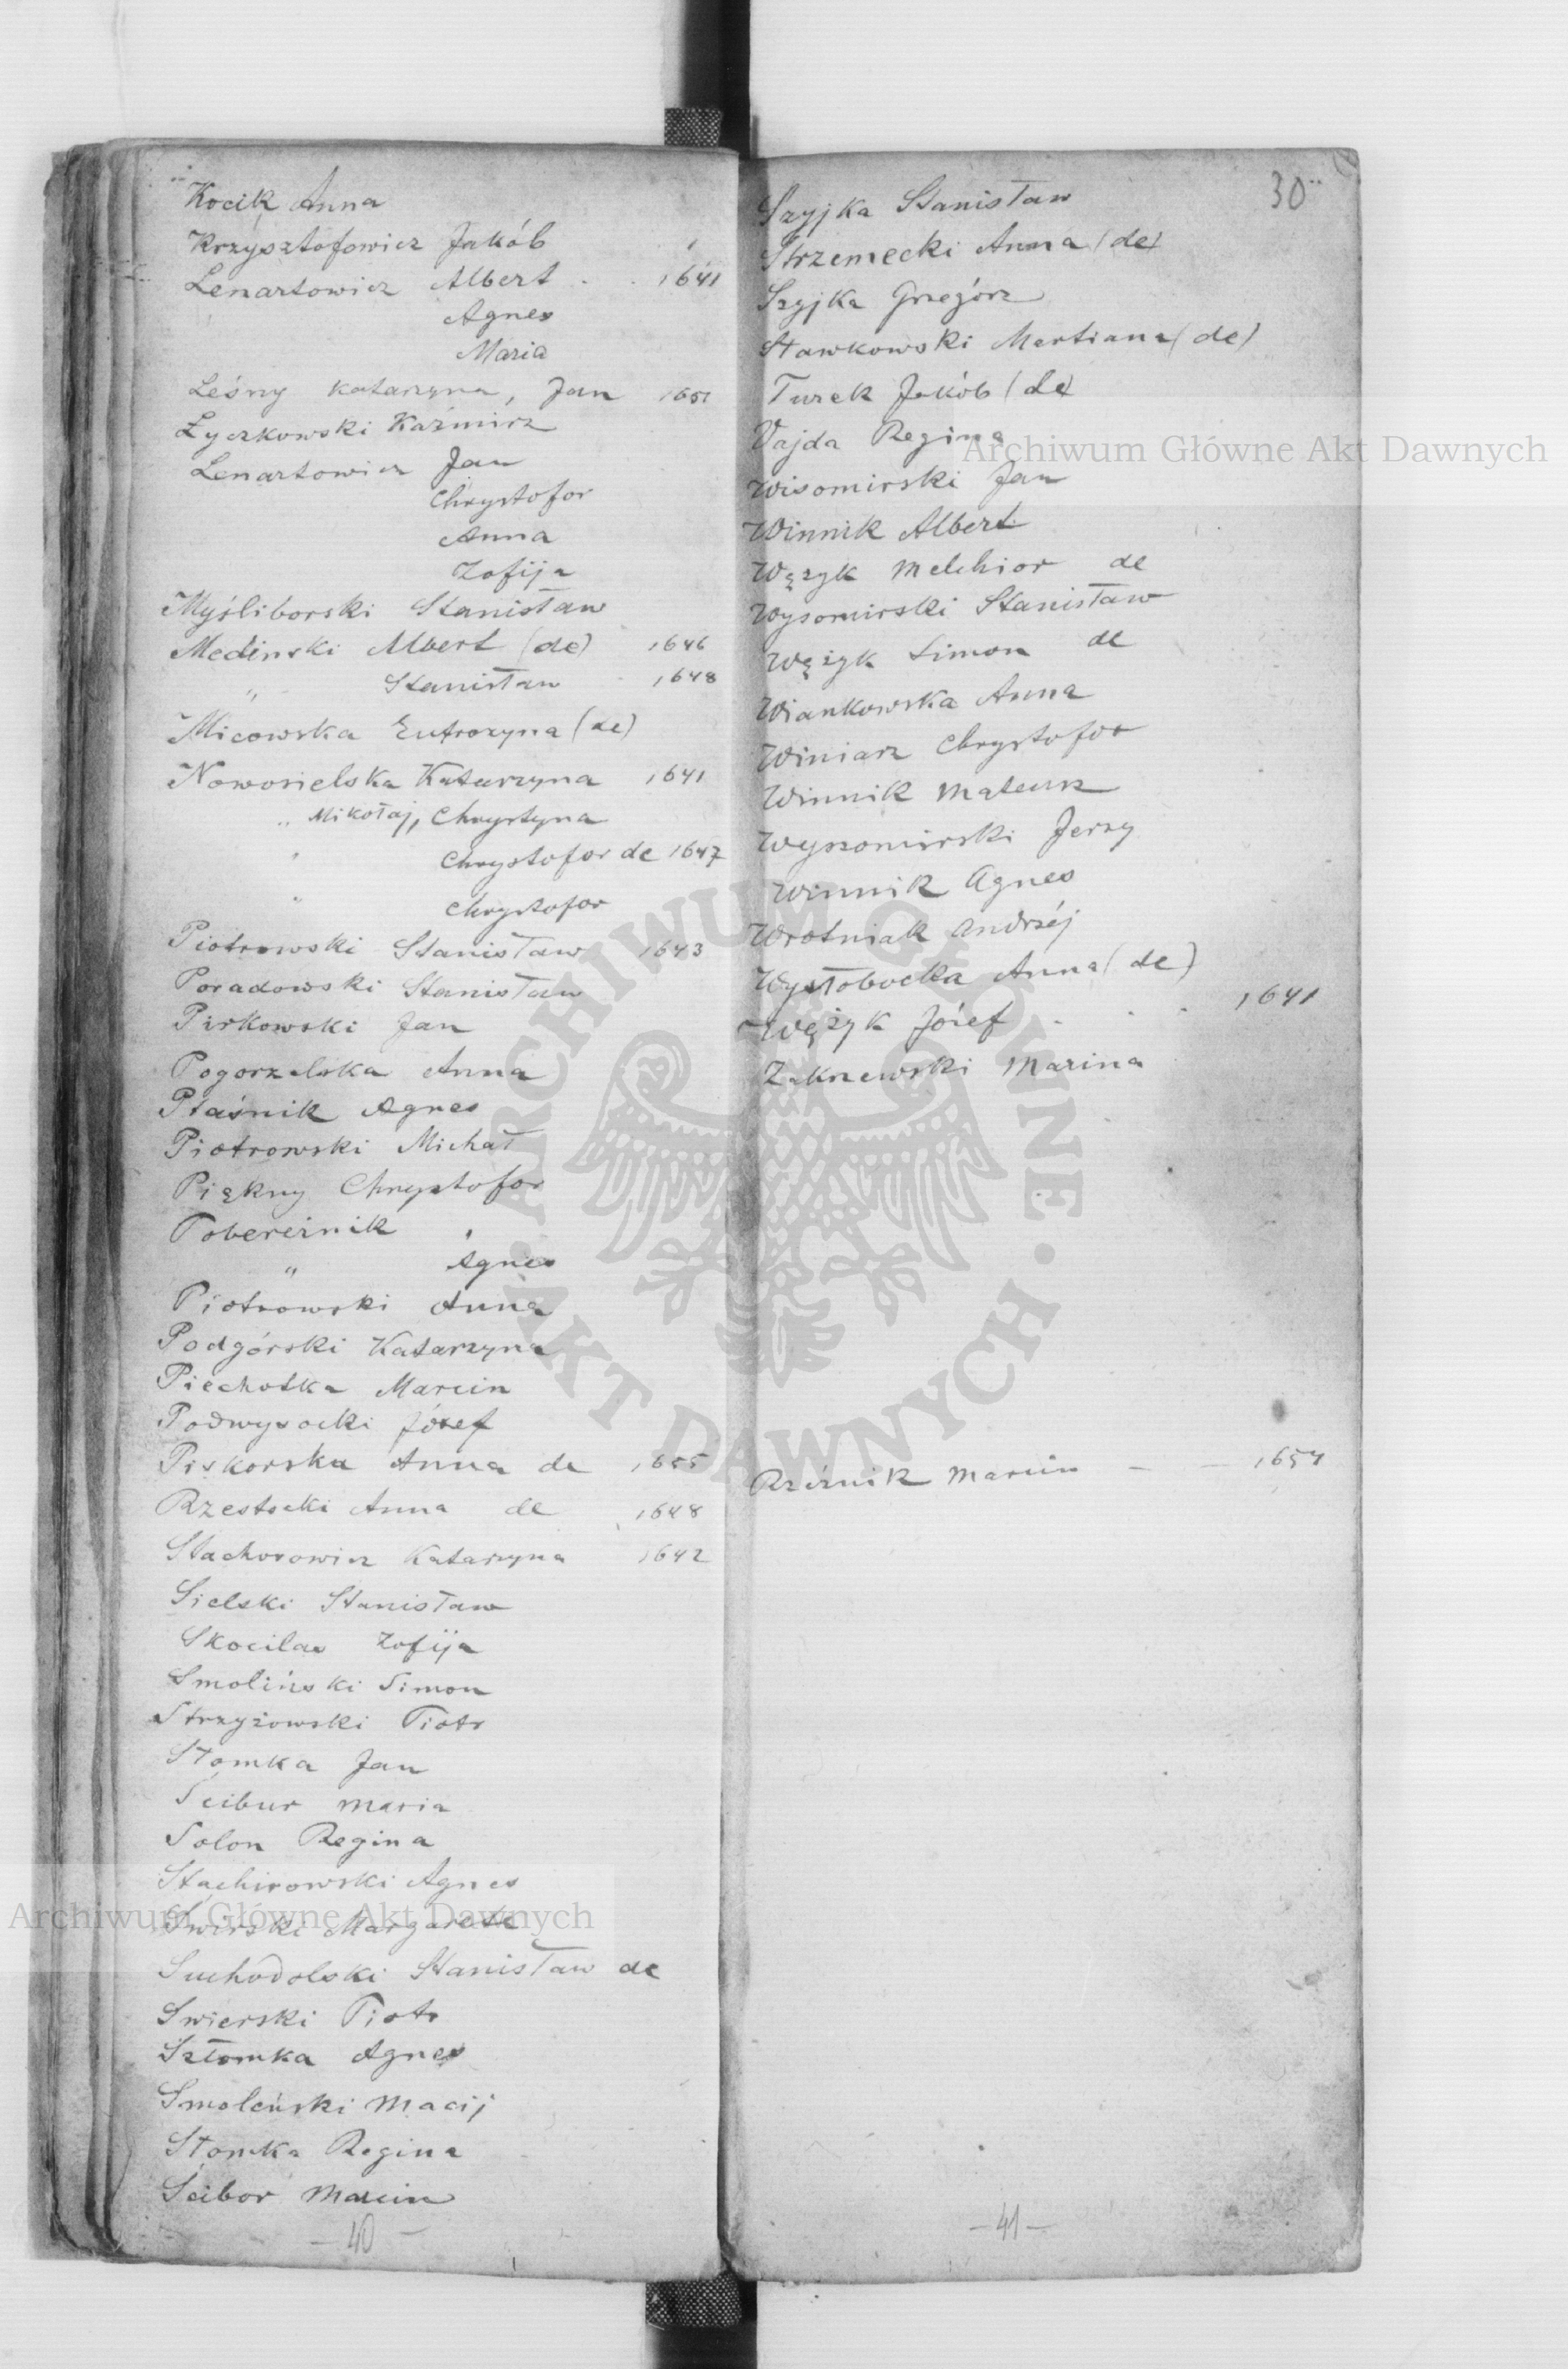 Kocik Anna
Krzysztofowicz Jakób
Lenartowicz Albert . . 1641
Agnes
Maria
Leśny Katarzyna, Jan 1651
Łyczkowski Kaźmirz
Lenartowicz Jan
Chrystofor
Anna
Zofija
Myśliborski Stanisław
Medinski Albert (de) 1646
" Stanisław 1648
Micowska Eufrozyna (de)
Nowosielska Katarzyna 1641
" Mikołaj, Chrystyna
" Chrystofor de 1647
" Chrystofor
Piotrowski Stanisław 1643
Poradowski Stanisław
Pirkowski Jan
Pogorzelska Anna
Ptaśnik Agnes
Piotrowski Michał
Piękny Chrystofor
Pobereżnik "
" Agnes
Piotrowski Anna
Podgórski Katarzyna
Piechotka Marcin
Podwysocki Józef
Piskorska Anna de 1655
Rzestocki Anna de 1648
Stachorowicz Katarzyna 1642
Sielski Stanisław
Skocilas Zofija
Smoliński Simon
Strzyżowski Piotr
Słomka Jan
Scibur Maria
Solon Regina
Stachirowski Agnes
Świrski Margareta
Suchodolski Stanisław de
Swierski Piotr
Szłomka Agnes
Smoleński Macij
Słomka Regina
Ścibor Marcin
- 40 -
30
Szyjka Stanisław
Strzemecki Anna (de)
Szyjka Grzegórz
Sławkowski Martiana (de)
Turek Jakób (de)
Vajda Regina
Wisomirski Jan
Winnik Albert
Wężyk Melchior de
Wysomirski Stanisław
Wężyk Simon de
Wiankowska Anna
Winiarz Chrystofor
Winnik Mateusz
Wyszomirski Jerzy
Winnik Agnes
Wrotniak Andrzéj
Wysłobocka Anna (de)
Wężyk Józef . . . 1641
Zaknewski Marina
Rzeźnik Marcin - - 1654
- 41 -
Archiwum Główne Akt Dawnych
Archiwum Główne Akt Dawnych
ARCHIWUM GŁÓWNE · AKT DAWNYCH ·